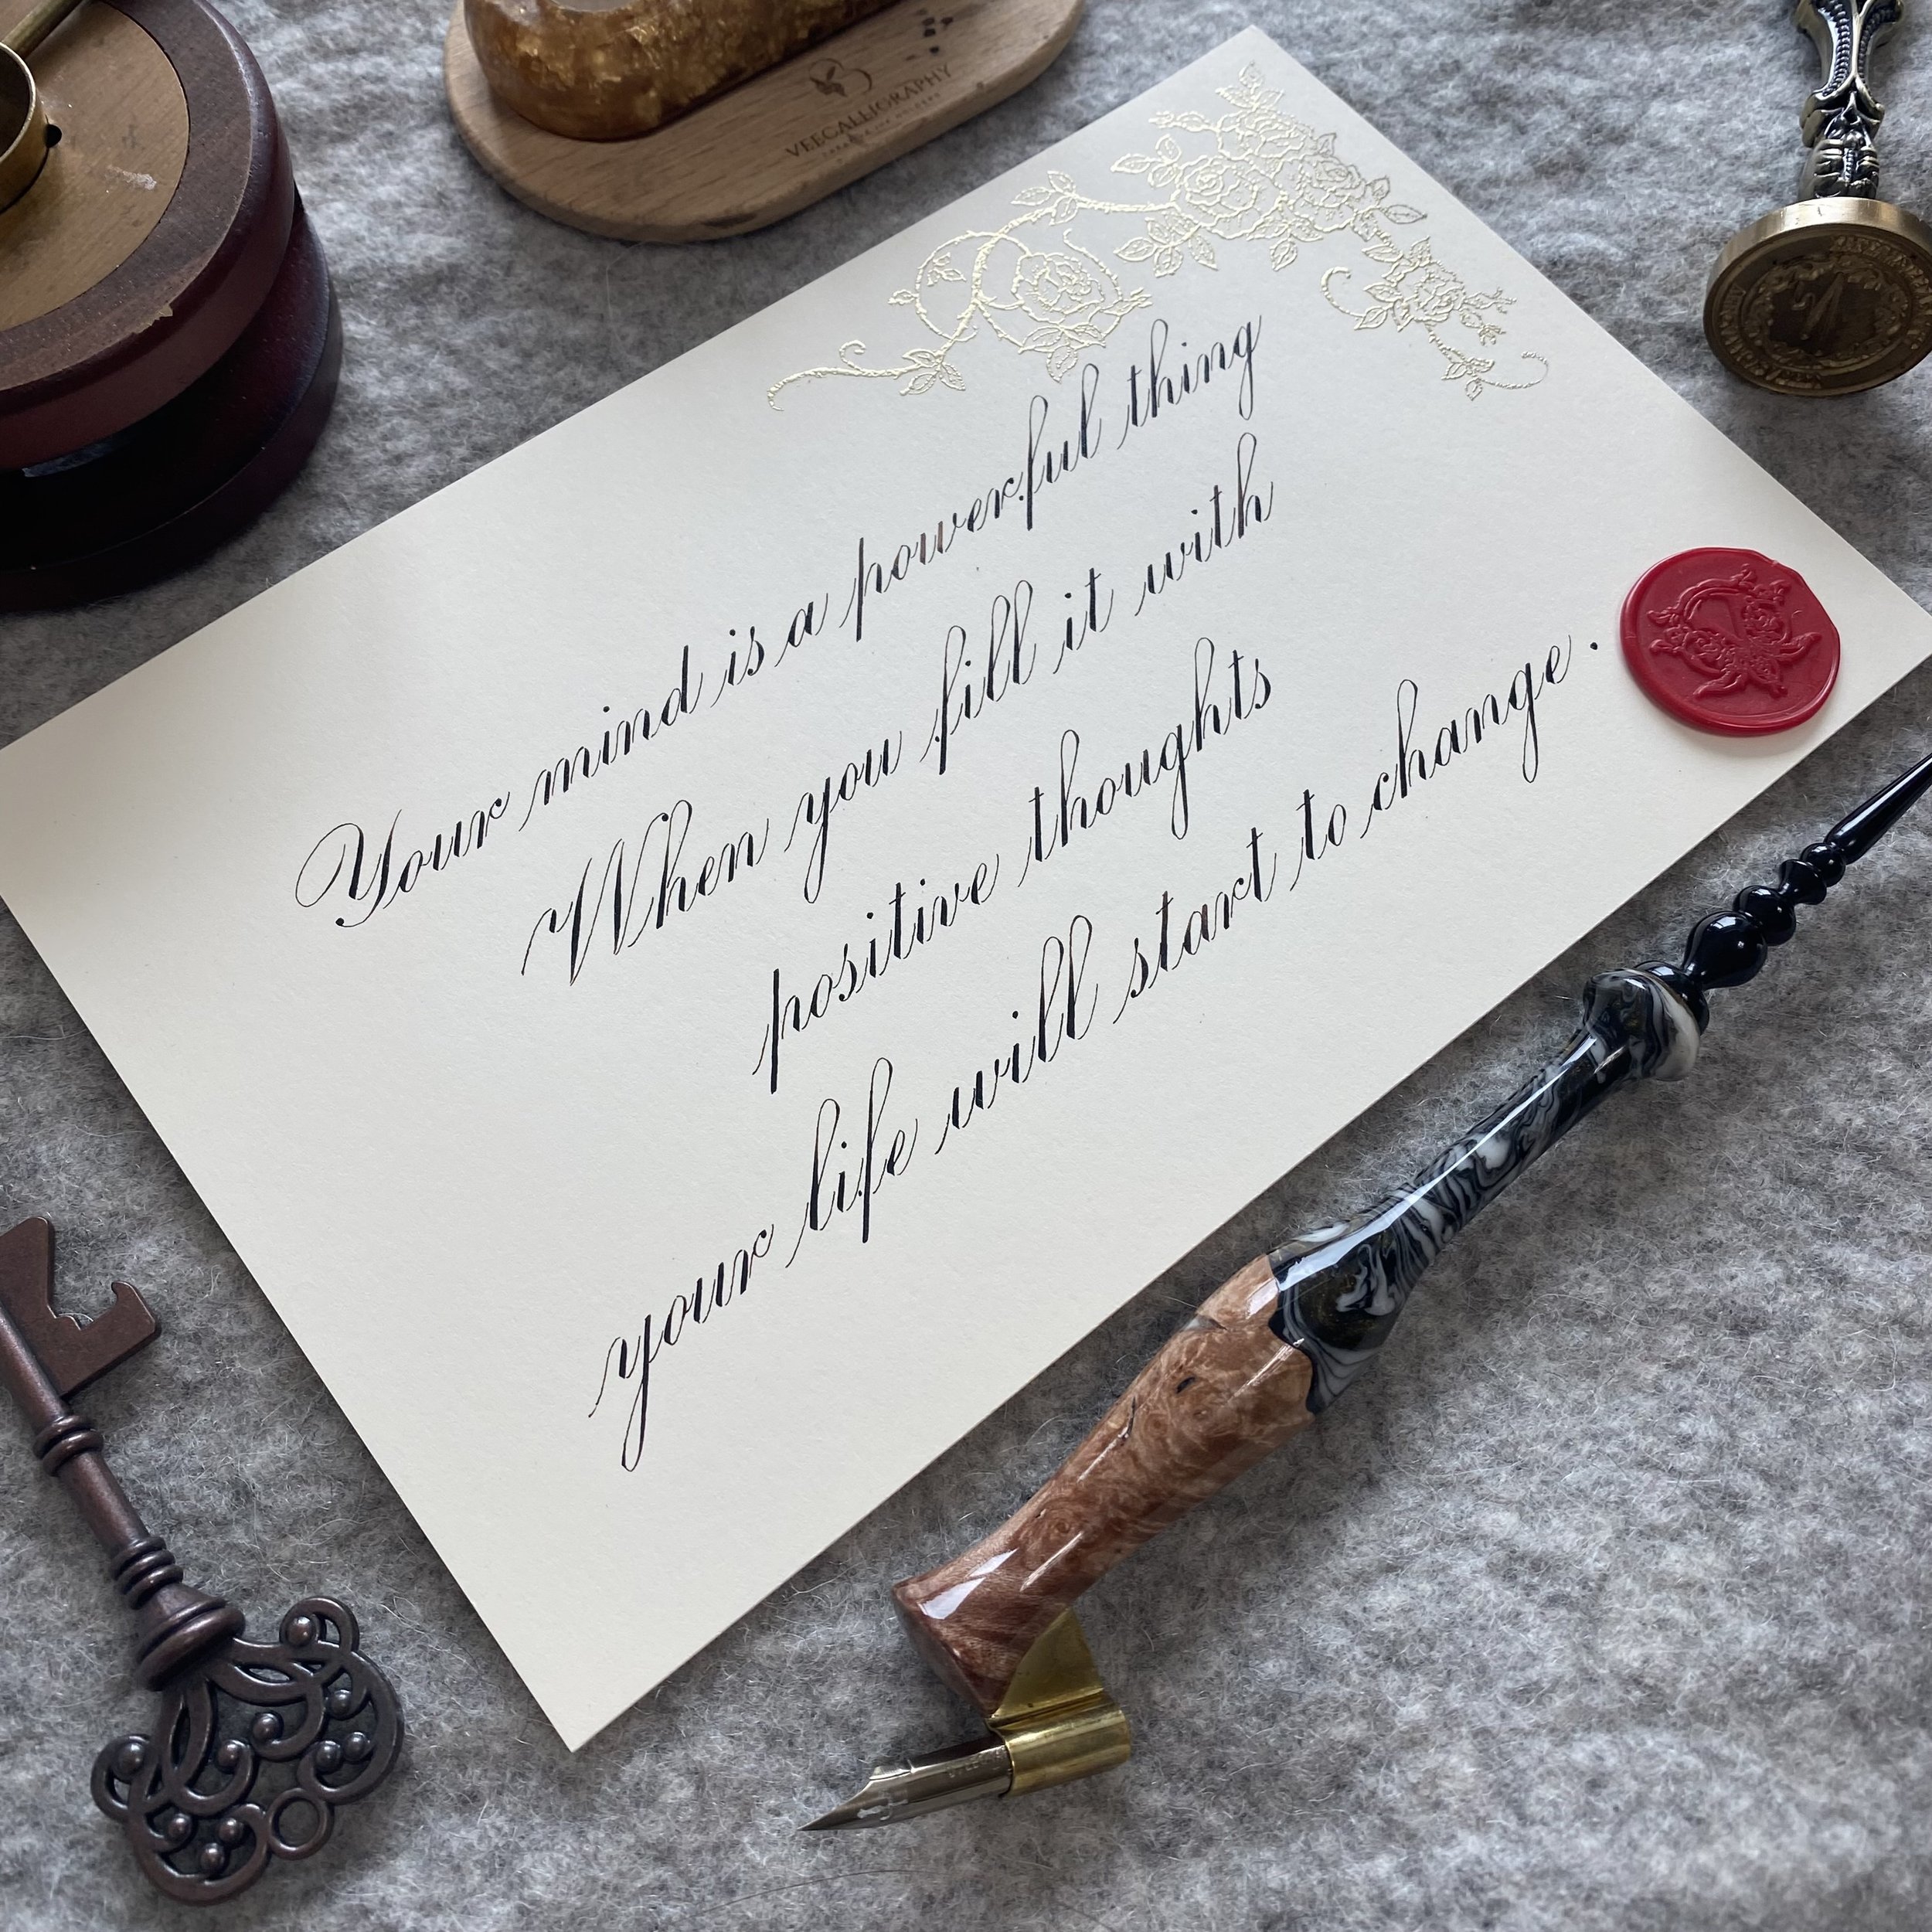 VEECALLIGRAPHY
Your mind is a powerful thing
When you fill it with
positive thoughts
your life will start to change.